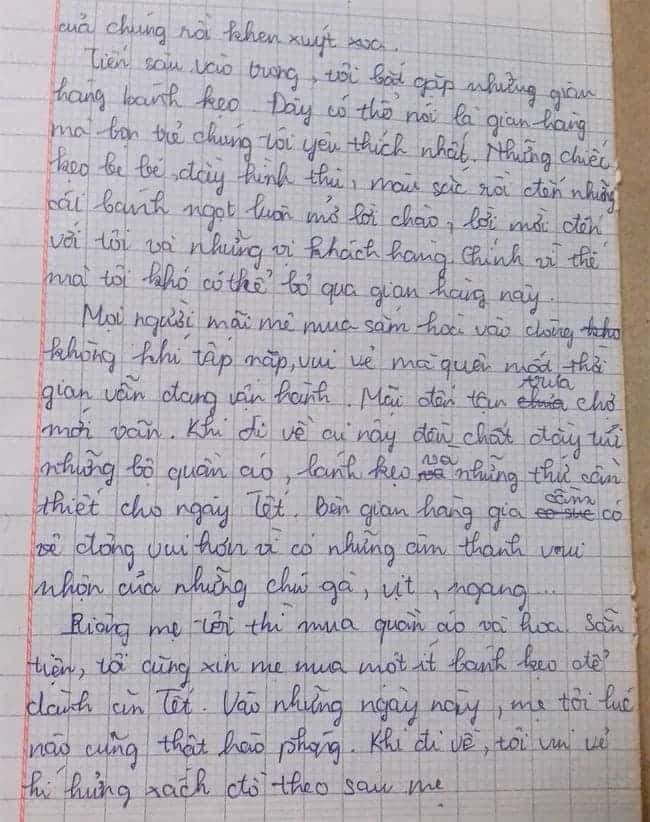 của chúng rồi khen xuýt xoa.
Tiến sâu vào trong, tôi bắt gặp những gian
hàng bánh kẹo. Đây có thể nói là gian hàng
mà bọn trẻ chúng tôi yêu thích nhất. Những chiếc
kẹo be bé, đầy hình thù, màu sắc rồi đến những
cái bánh ngọt luôn mở lời chào, lời mời đến
với tôi và những vị khách hàng. Chính vì thế
mà tôi khó có thể bỏ qua gian hàng này.
Mọi người mải mê mua sắm hoà vào chung
không khí tấp nập, vui vẻ mà quên mất thời
gian vẫn đang vận hành. Mãi đến tận trưa chợ
mới vãn. Khi đi về ai nấy đều chất đầy túi
những bộ quần áo, bánh kẹo và những thứ cần
thiết cho ngày Tết. Bên gian hàng gia cầm có
vẻ đông vui hơn vì có những âm thanh vui
nhộn của những chú gà, vịt, ngang...
Riêng mẹ tôi thì mua quần áo và hoa. Sẵn
tiện, tôi cũng xin mẹ mua một ít bánh kẹo để
dành ăn Tết. Vào những ngày này, mẹ tôi lúc
nào cũng thật hào phóng. Khi đi về, tôi vui vẻ
hí hửng xách đồ theo sau mẹ